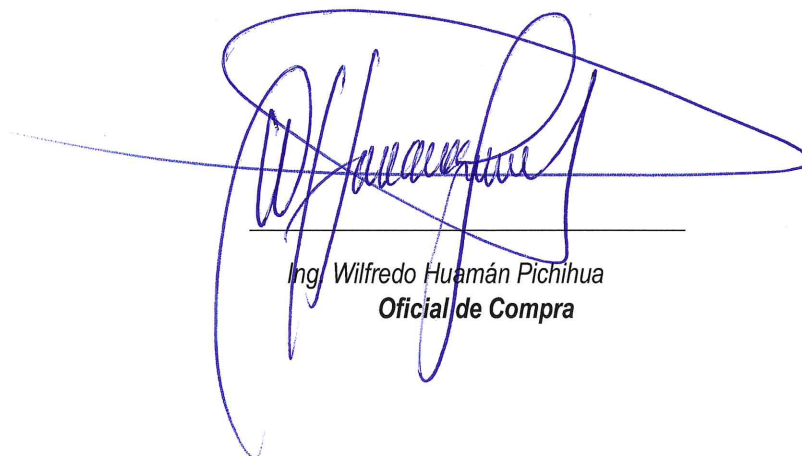 Ing. Wilfredo Huamán Pichihua
Oficial de Compra